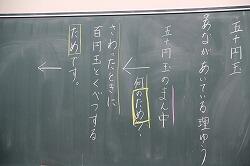 五十円玉
あながあいている理ゆう
五十円玉のまん中
何のため?
さわったときに
百円玉とくべつする
ためです。